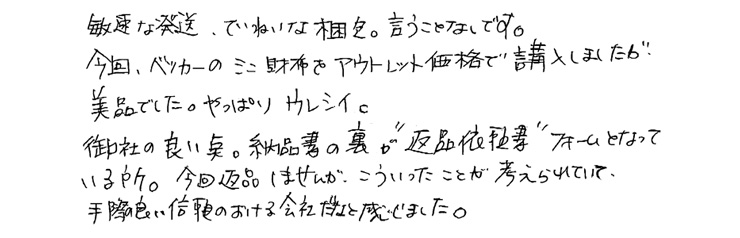 敏速な発送、ていねいな梱包。言うことなしです。
今回、ベッカーのミニ財布をアウトレット価格で講入しましたが
美品でした。やっぱりウレシイ。
御社の良い点。納品書の裏が"返品依頼書"フォームとなって
いる所。今回返品しませんが、こういったことが考えられていて、
手際の良い信頼のおける会社だなと感じました。